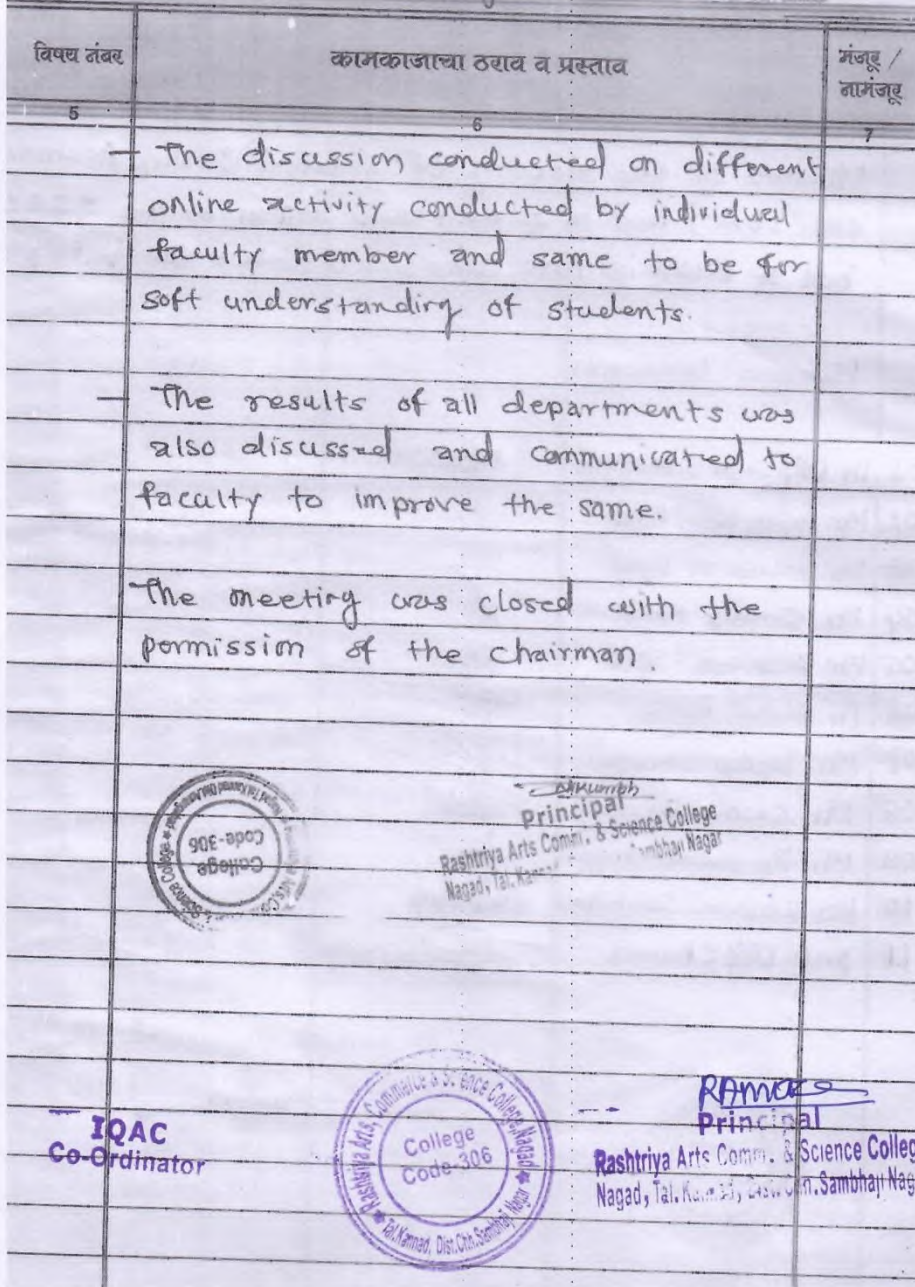 विषय नंबर
कामकाजाचा ठराव व प्रस्ताव
मंजूर /
नामंजूर
5
6
7
— The discussion conducted on different
online activity conducted by individual
faculty member and same to be for
soft understanding of students.
— The results of all departments was
also discussed and communicated to
faculty to improve the same.
- The meeting was closed with the
permission of the chairman
College
Code-306
Principal
Rashtriya Arts Comm. & Science College
Nagad, Tal.
IQAC
Co-Ordinator
Rashtriya Arts, Commerce & Science College, Nagad
College
Code-306
Tal.Kannad, Dist.Chh.Sambhaji Nagar
Principal
Rashtriya Arts Comm. & Science Colleg
Nagad, Tal. Sambhaji Nag